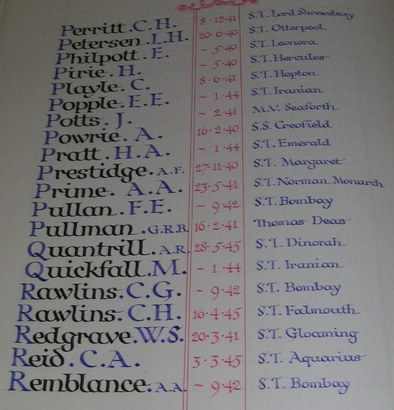 Perritt. C. H. 8·12·41 S.T. Lord Shrewsbury
Petersen. J. H. 20·6·40 S.T. Otterpool
Philpott. E. – 5·40 S.T. Leonora
Pirie. H. – 5·40 S.T. Hercules
Playle. C. 8·6·41 S.T. Hopton
Popple. E. E. – 1·44 S.T. Iranian
Potts. J. – 2·41 M.V. Seaforth
Powrie. A. 16·2·40 S.S. Creofield
Pratt. H. A. – 1·44 S.T. Emerald
Prestidge. A.F. 27·11·40 S.T. Margaret
Prime. A. A. 23·5·41 S.T. Norman Monarch
Pullan. F. E. – 9·42 S.T. Bombay
Pullman. G.R.B. 16·2·41 Thomas Deas
Quantrill. A.R. 28·5·45 S.T. Dinorah
Quickfall. M. – 1·44 S.T. Iranian
Rawlins. C. G. – 9·42 S.T. Bombay
Rawlins. C. H. 16·4·45 S.T. Falmouth
Redgrave. W. S. 20·3·41 S.T. Gloaming
Reid. C. A. 3·3·45 S.T. Aquarius
Remblance. A.A. – 9·42 S.T. Bombay